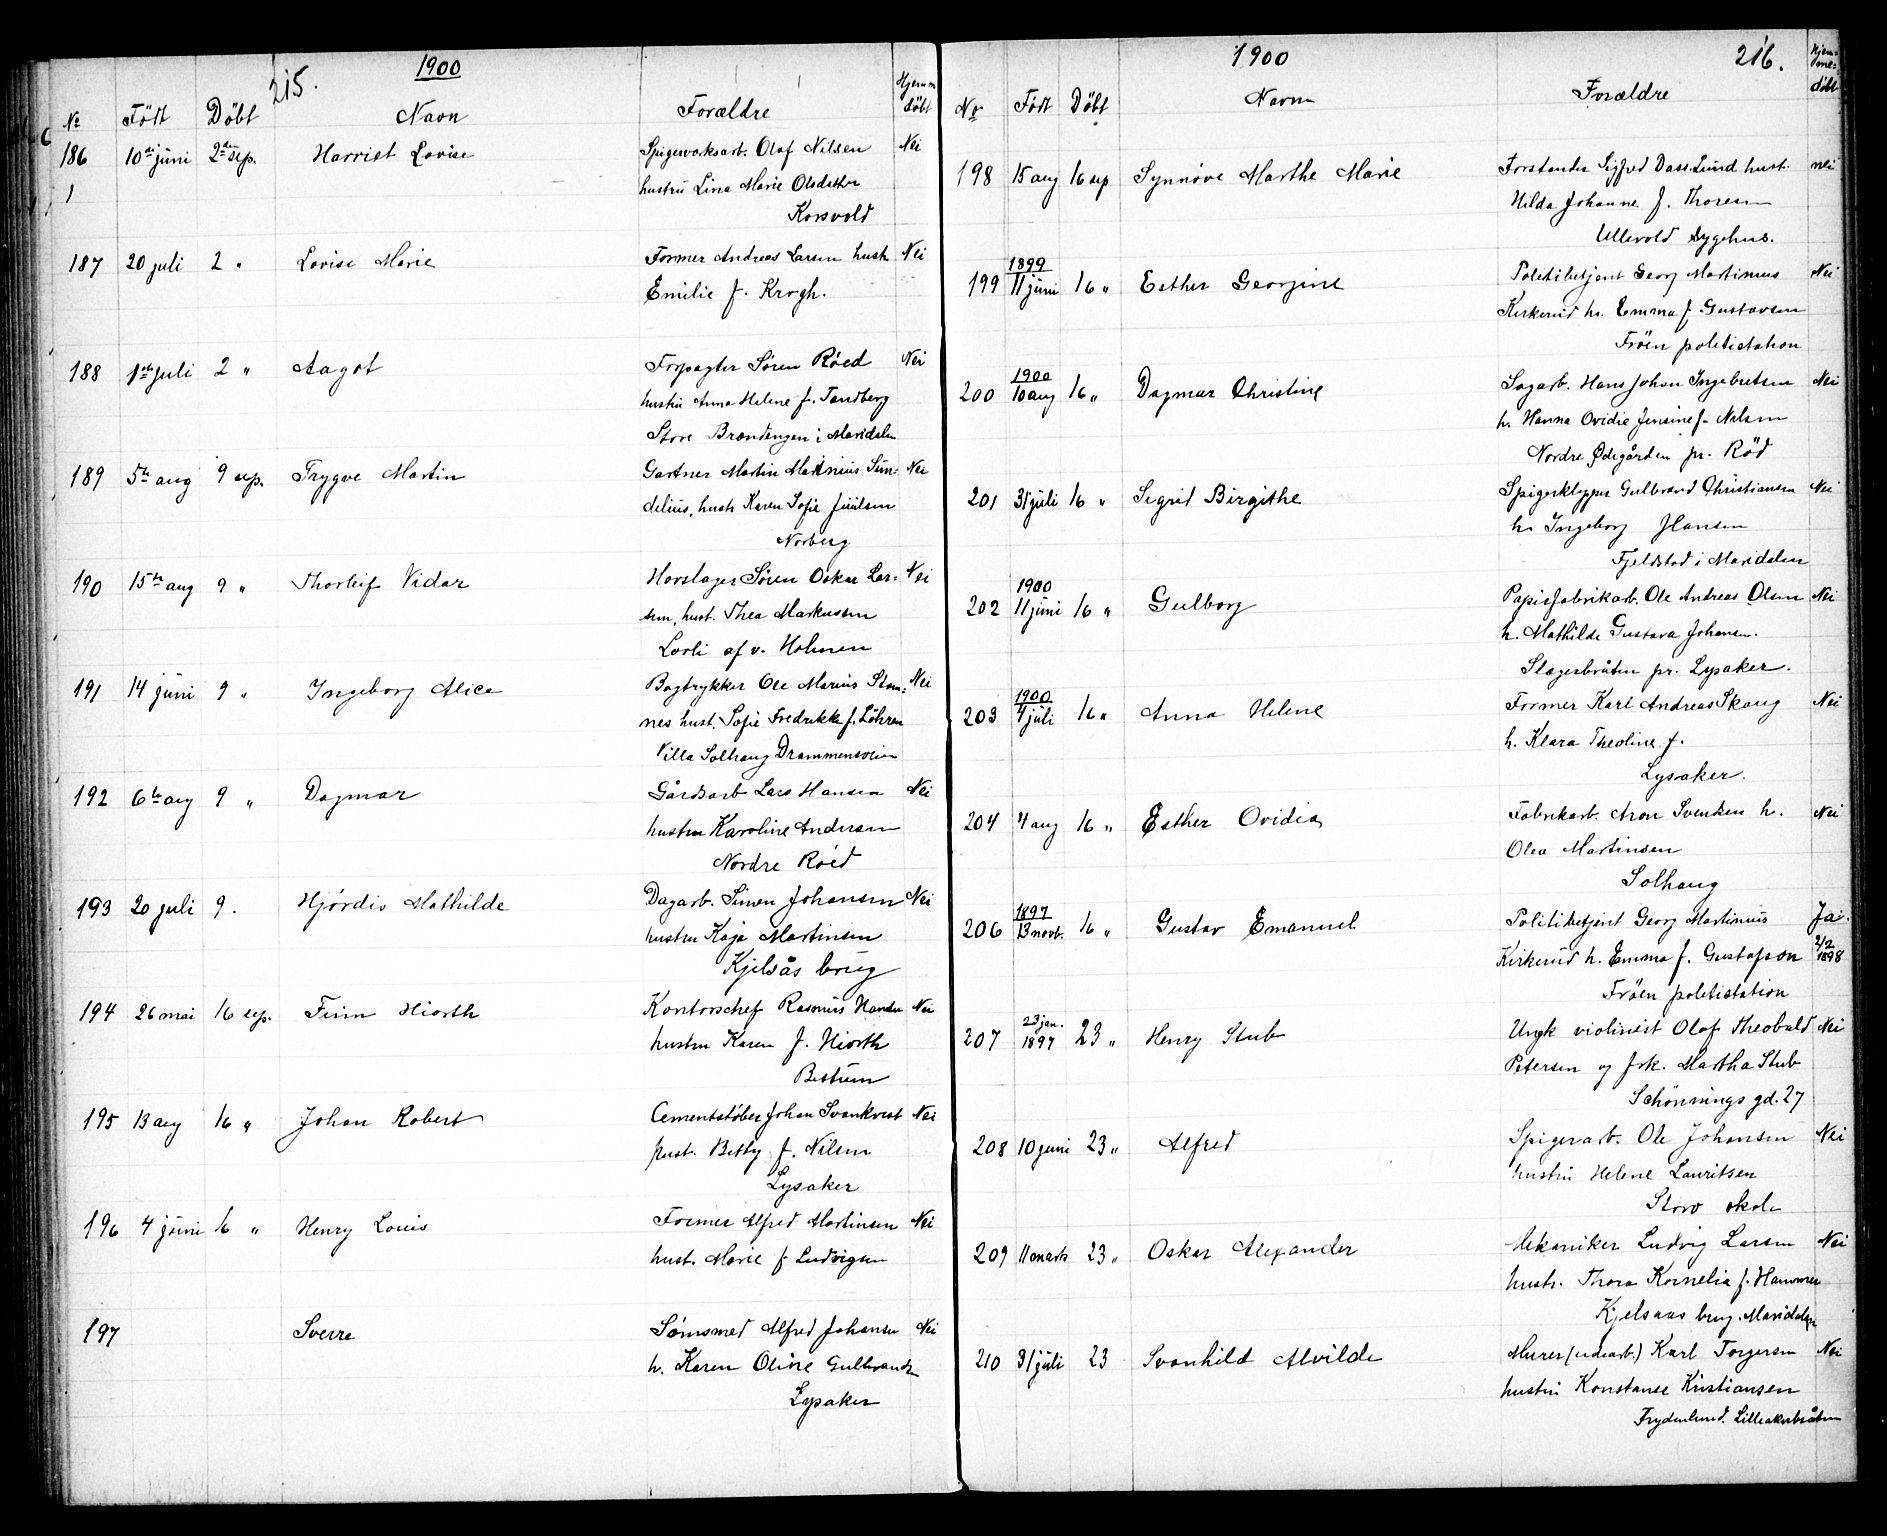 1900
215.
№ Födt Döbt Navn Forældre Hjem döbt
186 10de juni 2den sep. Harriet Lovise Spigerverksarb. Olaf Nilsen Nei
hustru Lina Marie Olsdatter
Korsvold
187 20 juli 2 " Lovise Marie Former Andreas Larsen hust Nei
Emilie f. Krogh.
188 1ste juli 2 " Aagot Forpagter Sören Röed Nei
hustru Anna Helene f. Tandberg
Store Brændengen i Maridalen
189 5te aug 9 sep. Trygve Martin Gartner Martin Martinius Sun- Nei
delius, hust Karen Sofie Juulsen
Norberg
190 15te aug 9 " Thorleif Vidar Hovslager Sören Oskar Lar- Nei
sen, hust. Thea Markussen
Lovli af v. Holmen
191 14 juni 9 " Ingeborg Alice Bogtrykker Ole Marius Stem- Nei
nes hust. Sofie Fredrikke f. Löhren
Villa Solhaug Drammensveien
192 6te aug 9 " Dagmar Gårdsarb Lars Hansen Nei
hustru Karoline Andersen
Nordre Röed
193 20 juli 9. Hjördis Mathilde Dagarb. Simen Johansen Nei
hustru Kaja Martinsen
Kjelsås brug
194 26 mai 16 sep. Finn Hiorth Kontorschef Rasmus Hander Nei
hustru Karen f. Hiorth
Bestum
195 13 aug 16 " Johan Robert Cementstöber Johan Svankvist Nei
hust. Betty f. Nilsen
Lysaker
196 4 juni 16 " Henry Louis Former Alfred Martinsen Nei
hust. Marie f Ludvigsen
197 Sverre Sömsmed Alfred Johansen Nei
h. Karen Oline Gulbrands
Lysaker
1900
216.
No Födt Döbt Navn Forældre Hjem-me-döbt
198 15 aug 16 sep Synnöve Marthe Marie Forstander Sigfred Dass Lund hust. nei
Hilda Johanne f. Thoresen
Ullevold Sygehus.
199 1899 11 juni 16 " Esther Georgine Politibetjent Georg Martinius Nei
Kirkerud h. Emma f Gustavsen
Fröen politistation
200 1900 10 aug 16 " Dagmar Christine Sagarb. Hans Johan Ingebretsen Nei
h. Hanna Ovidie Jensine f. Nilsen
Nordre Ødegården pr. Röd
201 31 juli 16 " Sigrid Birgithe Spigerklipper Gulbrand Christiansen Nei
h. Ingeborg Hansen
Fjeldstad i Maridalen
202 1900 11 juni 16 " Gulborg Papirfabrikarb. Ole Andreas Olsen Nei
h. Mathilde Gustava Johansen.
Slagersbråten pr. Lysaker.
203 1900 4 juli 16 " Anna Helene Former Karl Andreas Skaug Nei
h. Klara Theoline f.
Lysaker.
204 4 aug 16 " Esther Ovidia Fabrikarb. Aron Svendsen h. Nei
Olea Martinsen
Solhaug
206 1897 13 novb. 16 " Gustav Emanuel Politibetjent Georg Martinius Ja.
Kirkerud h. Emma f. Gustafson 2/2 1898
Fröen politistation
207 23 jan. 1897 23 " Henry Stub Ungk violinist Olaf Theobald Nei
Petersen og frk. Martha Stub
Schönnings gd. 27
208 10 juni 23 " Alfred Spigerarb. Ole Johansen Nei
hustru Helene Lauritsen
Storo skole
209 11 marts 23 " Oskar Alexander Mekaniker Ludvig Larsen Nei
hustr. Thora Kornelia f. Hammer
Kjelsaas brug. Maridalen
210 31 juli 23 Svanhild Alvilde Murer (udearb.) Karl Torgersen Nei
hustru Konstanse Kristiansen
Frydenlund. Lilleakerbråten